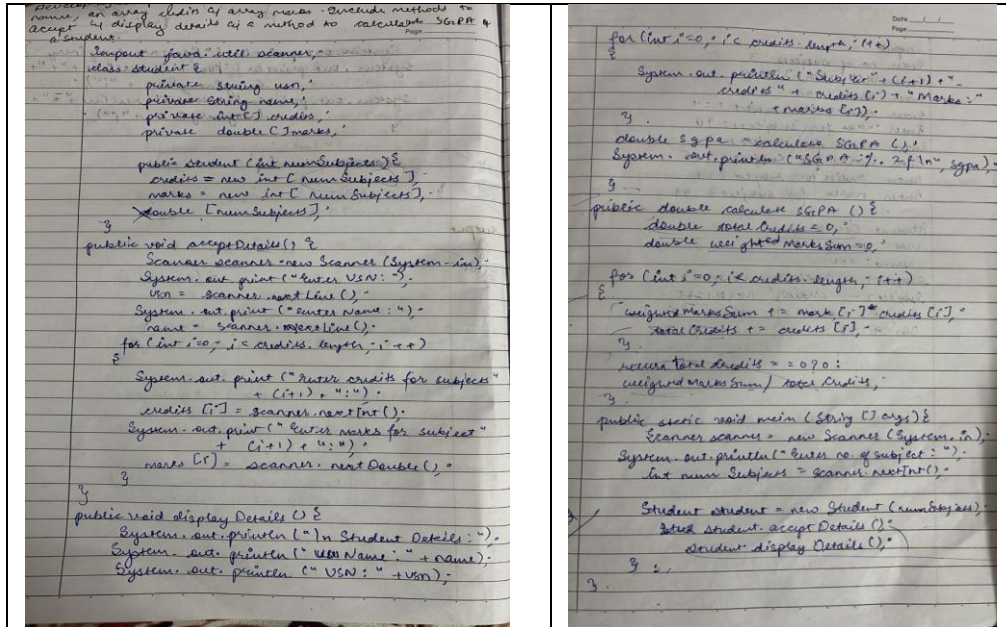 name, an array credits & array marks. Include methods to
accept & display details & a method to calculate SGPA of
a student.
Page
import java.util.scanner;
class student {
private string usn;
private string name;
private int[] credits;
private double[] marks;
public student (int numSubjects) {
credits = new int[numSubjects];
marks = new int[numSubjects];
double [numSubjects];
}
public void acceptDetails() {
Scanner scanner = new Scanner (System.in);
System.out.print ("Enter USN: ");
usn = scanner.nextLine();
System.out.print ("Enter Name: ");
name = scanner.nextLine();
for (int i=0; i < credits.length; i++)
{
System.out.print ("Enter credits for subjects"
+ (i+1) + ":");
credits [i] = scanner.nextInt();
System.out.print ("Enter marks for subject"
+ (i+1) + ":");
marks [i] = scanner.nextDouble();
}
}
public void display Details () {
System.out.println ("\n Student Details: ");
System.out.println (" Name: " + name);
System.out.println (" USN: " + usn);
Date
Page
for (int i=0; i < credits.length; i++)
{
System.out.println ("Subject" + (i+1) + "
credits" + credits [i] + "Marks:"
+ marks [i]);
}
double sgpa = calculate SGPA ();
System.out.println ("SGPA: %.2f\n", sgpa);
}
public double calculate SGPA () {
double total Credits = 0;
double weighted marks Sum = 0;
for (int i=0; i < credits.length; i++)
{
weighted Marks Sum += mark [i] * credits [i];
total Credits += credits [i];
}
return total Credits == 0 ? 0 :
weighted Marks Sum / total Credits;
}
public static void main (String [] args) {
Scanner scanner = new Scanner (System.in);
System.out.println ("Enter no. of subject: ");
int num Subjects = scanner.nextInt();
Student student = new Student (numSubjects);
student.accept Details ();
student.display Details ();
}
}